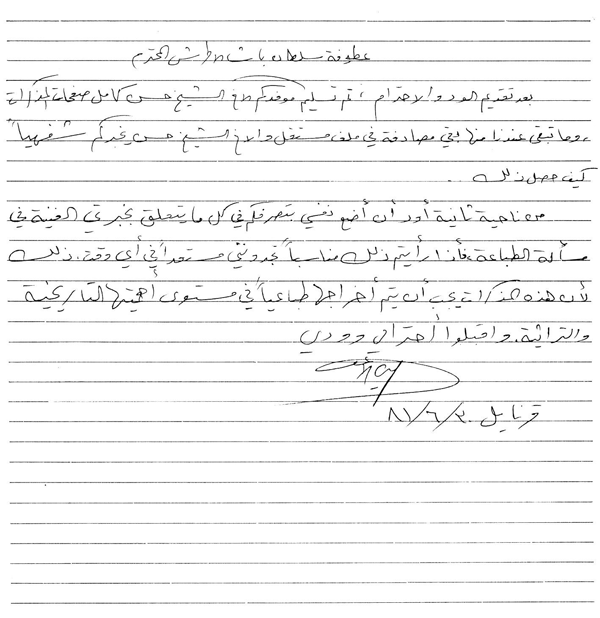 عطوفة سلطان باشا الاطرش المحترم
بعد تقديم الود والاحترام، تم تسليم موفدكم الاخ الشيخ حسن كامل صفحات المذكرات
، وما تبقى عندنا منها بقي مصادفة في ملف مستقل والاخ الشيخ حسن يخبركم شفهياً
كيف حصل ذلك ..
من ناحية ثانية أود أن أضع نفسي بتصرفكم في كل ما يتعلق بخبرتي الفنية في
مسألة الطباعة، فأذا رأيتم ذلك مناسباً تجدونني مستعداً في أي وقت. ذلك
لأن هذه المذكرات يجب أن يتم أخراجها طباعياً في مستوى أهميتها التاريخية
والتراثية. واقبلوا أحترامي وودي
قرنايل ٨١/٦/٣٠